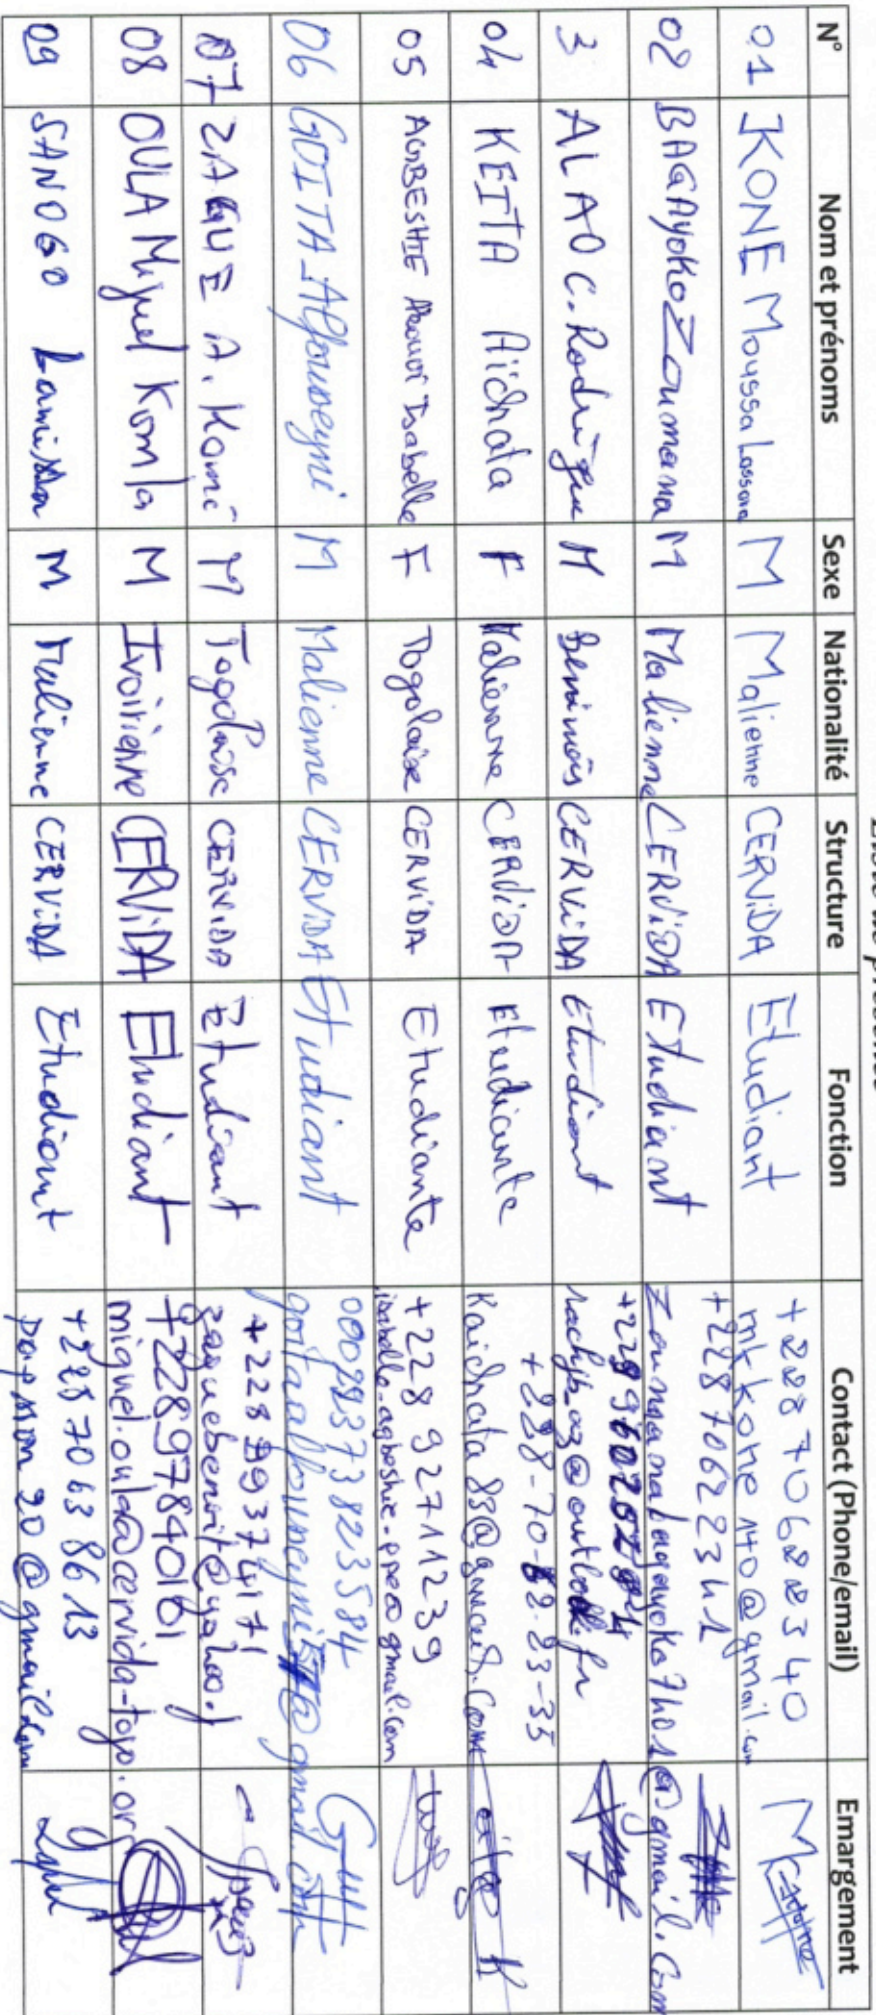 Liste de présence
N° Nom et prénoms Sexe Nationalité Structure Fonction Contact (Phone/email) Emargement
01 KONE Moussa Lassana M Malienne CERViDA Etudiant +228 70628340
mkkone140@gmail.com
02 BAGAYOKO Zoumana M Malienne CERViDA Etudiant +228 70622341
Zoumanabagayoko7401@gmail.com
3 ALAO C. Rodrigue M Béninois CERViDA Etudiant
04 KEITA Aïchata F Malienne CERViDA Etudiante +228-70-62-83-35
Kaichata83@gmail.com
05 AGBESHIE Akouvi Isabelle F Togolaise CERViDA Etudiante +228 92711239
isabelle.agbeshie.ppe@gmail.com
06 GOITA Alfousseyni M Malienne CERViDA Etudiant 0022373823584
07 ZAGUE A. Komi M Togolaise CERViDA Etudiant +228 99374171
08 OULA Miguel Komla M Ivoirienne CERViDA Etudiant +22897840161
miguel.oula@cervida-togo.org
09 SANOGO Lamissa M Malienne CERViDA Etudiant +228 70638613